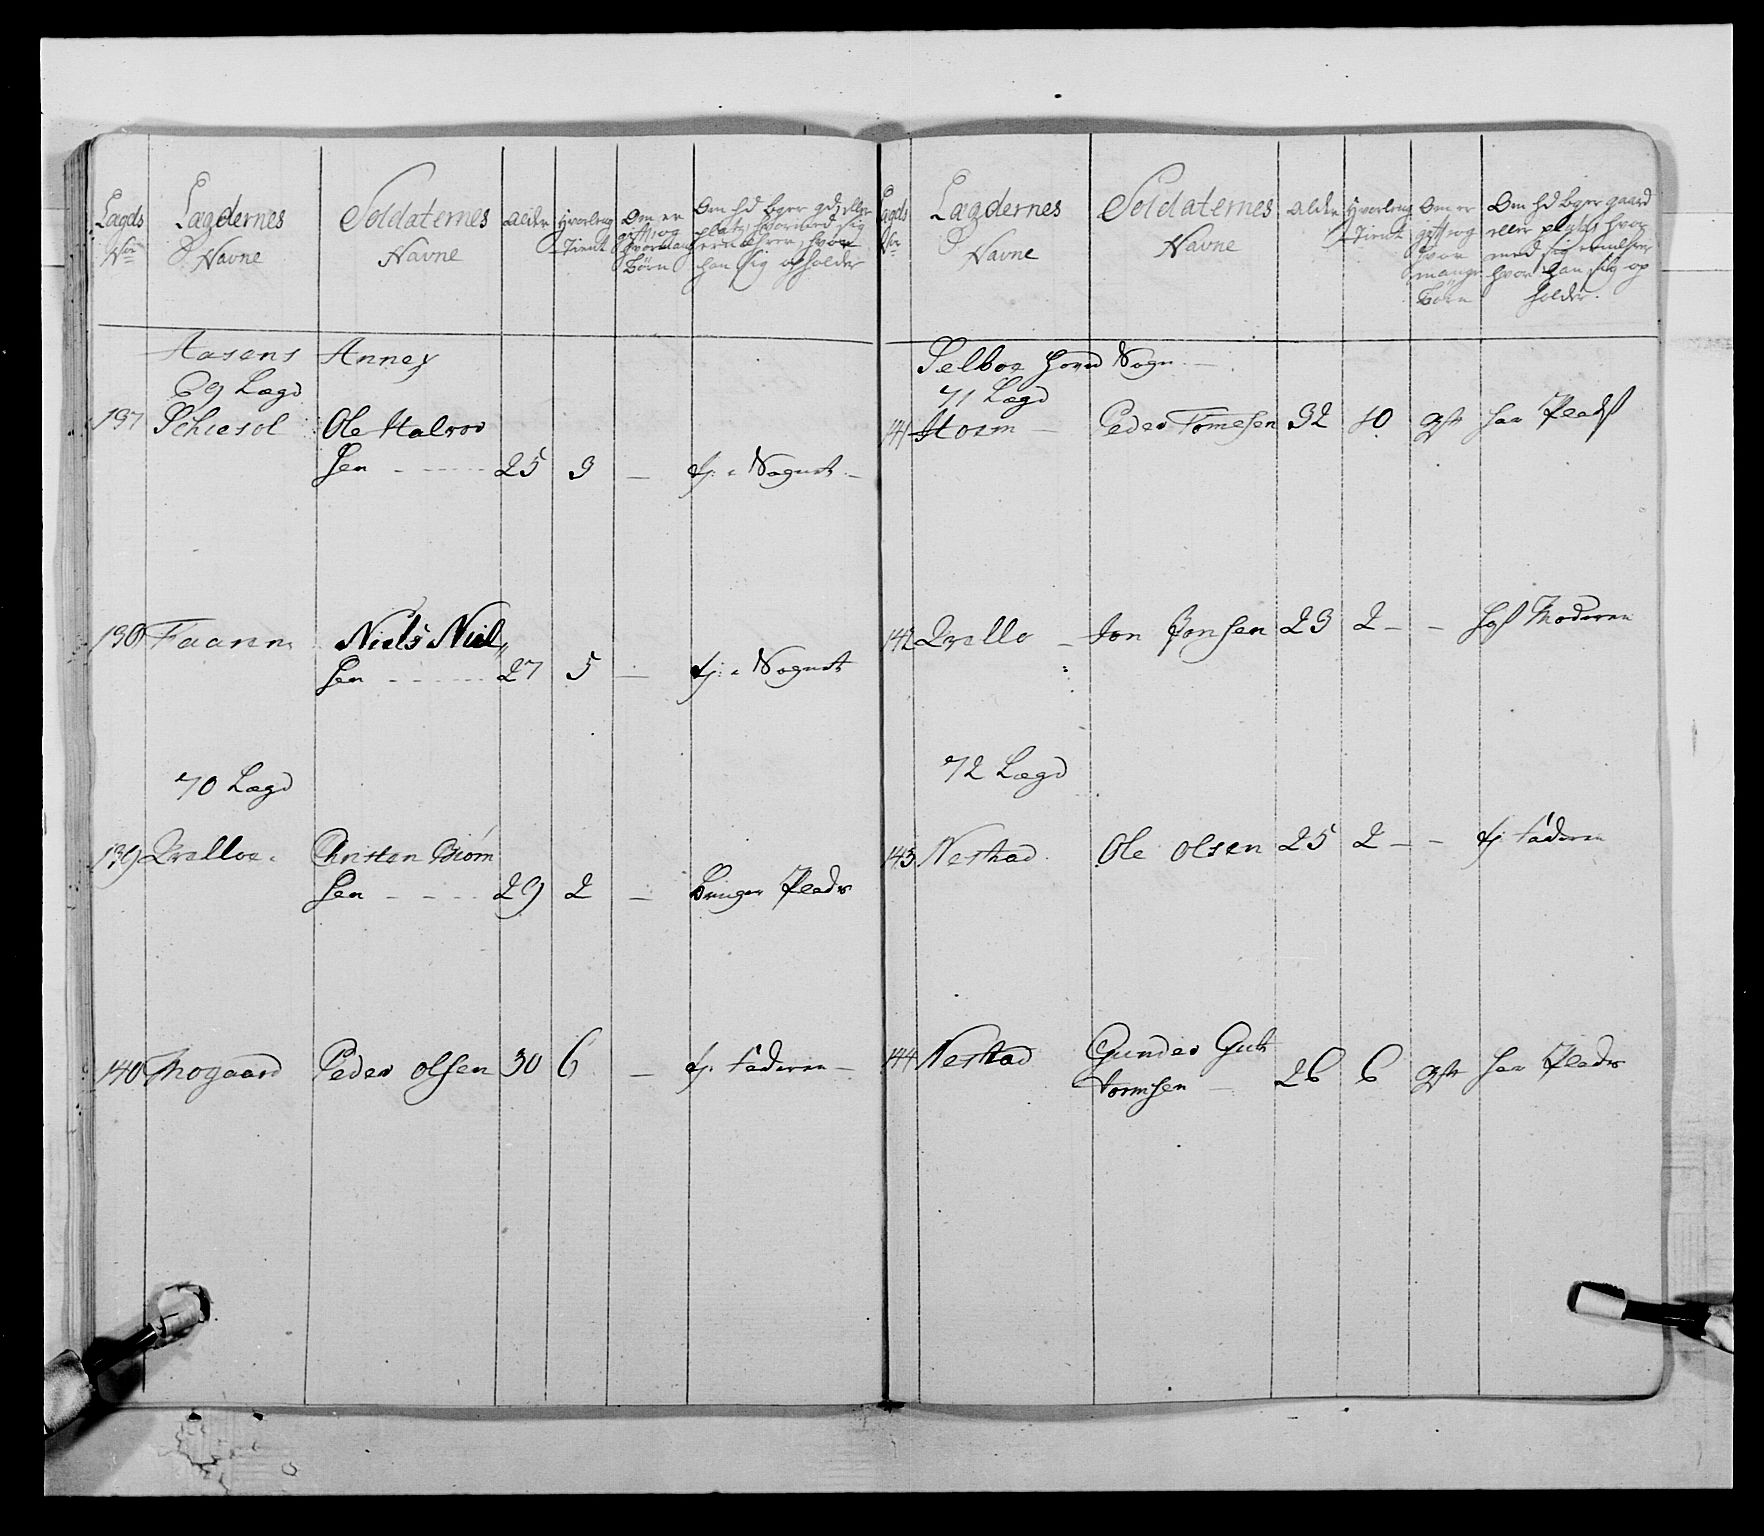 Lagds
No
Lægdernes
Navne
Soldaternes
Navne
Alder
Hvorleng
Tient
Om er
gift, og
hvormang
Børn
Om hd boger gd eller
plats, hvormed sig
ernehrer, hvor
han sig opholder
Aasens Annex
69 Lægd
137 Schiesol Ole Halvor
sen - - - 25 3 — tj: i Sognet —
138 Faaren Niels Niel„
sen - - - 27 5 — tj: i Sognet
70 Lægd
139 Qvelloe Christen Biørn
sen - - - 29 2 — Bruger Plads
140 Mogaard Peder Olsen 30 6 — tj. Faderen —
Lagds
No
Lægdernes
Navne
Soldaternes
Navne
Alder
Hvorleng
Tient
Om er
gift, og
hvor
mange
Børn
Om hd boger gaard
eller plats hvor
med sig ernehrer
hvor han sig op
holder.
Selboe Hoved Sogn —
71 Lægd
141 Hosm — Peder Tomesen 32 10 gift har Plads
142 Qvello — Jon Jonsen 23 2 — — hos Moderen
72 Lægd
143 Nestad Ole Olsen 25 2 — — tj. Faderen
144 Nestad Gunder Gut
tormsen — 26 6 gift har Plads